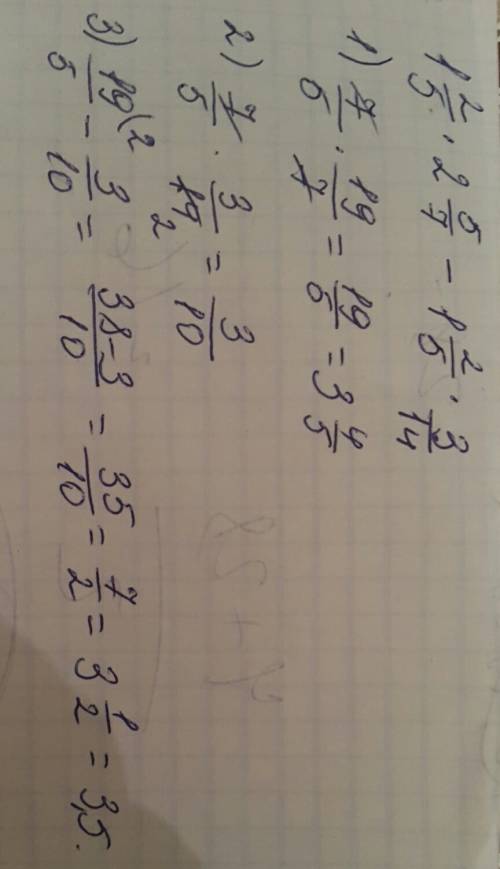 1 2/5 · 2 5/7 − 1 2/5 · 3/14
1) 7/5 · 19/7 = 19/5 = 3 4/5
2) 7/5 · 3/14 2 = 3/10
3) 19/5 (2 − 3/10 = 38-3/10 = 35/10 = 7/2 = 3 1/2 = 3,5.